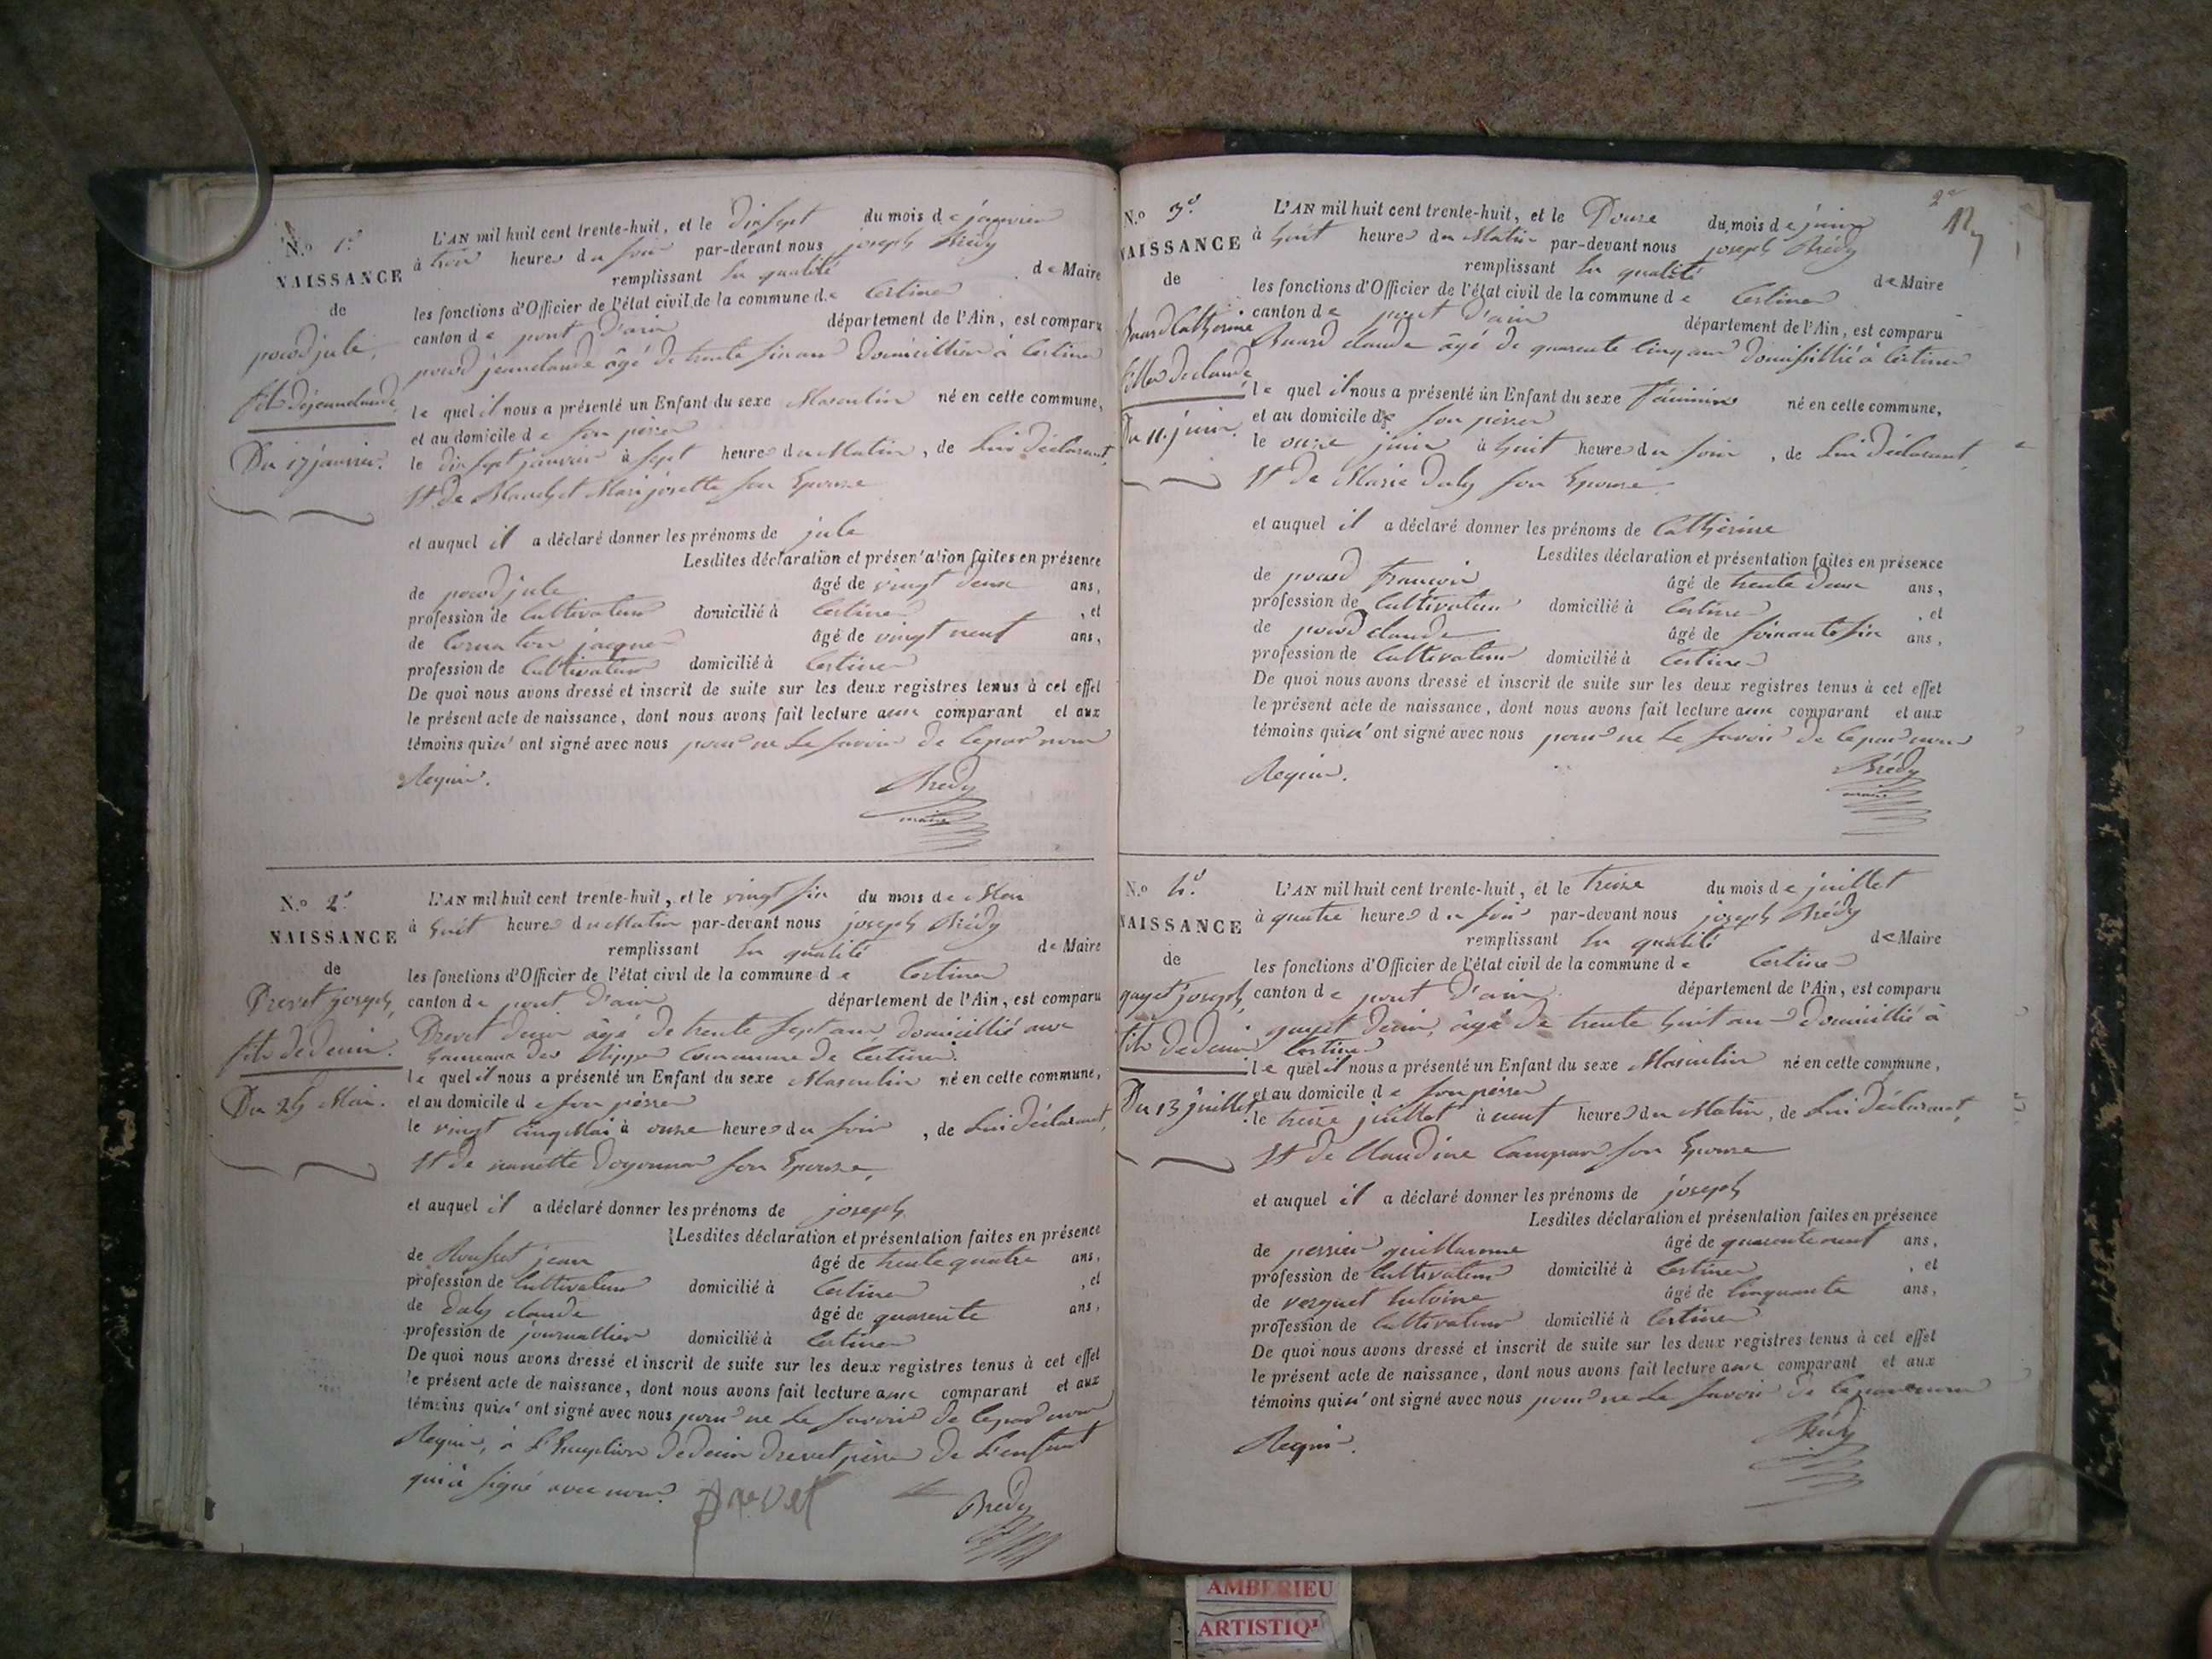 N.º 1.er
NAISSANCE
de
pocod jule,
fils de jeanclaude
Du 17 janvier.
L'AN mil huit cent trente-huit, et le dixsept du mois de janvier
à trois heures du soir par-devant nous joseph Brédy
remplissant En qualité de Maire
les fonctions d'Officier de l'état civil de la commune de Certines
canton de pont d'ain département de l'Ain, est comparu
jeanclaude âgé de trente six ans domicillié à Certines
lequel il nous a présenté un Enfant du sexe Masculin né en cette commune,
et au domicile de son pèrre
le dixsept janvier à sept heures du Matin, de Lui déclarant,
Et de Marijosette son Epouse
et auquel il a déclaré donner les prénoms de jule
Lesdites déclaration et présentation faites en présence
de jule âgé de vingt deux ans,
profession de Cultivateur domicilié à Certines, et
de Cornaton jacques âgé de vingt neuf ans,
profession de Cultivateur domicilié à Certines
De quoi nous avons dressé et inscrit de suite sur les deux registres tenus à cet effet
le présent acte de naissance, dont nous avons fait lecture aux comparant et aux
témoins qui n'ont signé avec nous pour ne Le savoir de Cepar nous
Requis.
Brédy
maire
N.º 2.e
NAISSANCE
de
Drevet joseph,
fils de denis.
Du 25 Mai.
L'AN mil huit cent trente-huit, et le vingt six du mois de Mai
à huit heures du Matin par-devant nous joseph Brédy
remplissant En qualité de Maire
les fonctions d'Officier de l'état civil de la commune de Certines
canton de pont d'ain département de l'Ain, est comparu
Drevet denis âgé de trente sept ans, domicillié aux
hameaux des Rippes Commune de Certines.
lequel il nous a présenté un Enfant du sexe Masculin né en cette commune,
et au domicile de son pèrre
le vingt cinq Mai à onze heures du soir, de Lui déclarant,
Et de nanette Doyonnas son Epouse,
et auquel il a déclaré donner les prénoms de joseph
Lesdites déclaration et présentation faites en présence
de Rousset jean âgé de trente quatre ans,
profession de Cultivateur domicilié à Certines, et
de Daly claude âgé de quarente ans,
profession de journallier domicilié à Certines
De quoi nous avons dressé et inscrit de suite sur les deux registres tenus à cet effet
le présent acte de naissance, dont nous avons fait lecture aux comparant et aux
témoins qui n'ont signé avec nous pour ne Le savoir de Cepar nous
Requis, à L'Exception de denis drevet pèrre de L'enfant
qui à signé avec nous.
Drevet
Brédy
2e
N.º 3.e
NAISSANCE
de
Catherine
fille de claude
Du 11. juin.
L'AN mil huit cent trente-huit, et le Douze du mois de juin
à huit heures du Matin par-devant nous joseph Brédy
remplissant En qualité de Maire
les fonctions d'Officier de l'état civil de la commune de Certines
canton de pont d'ain département de l'Ain, est comparu
claude âgé de quarente cinq ans domicillié à Certines
lequel il nous a présenté un Enfant du sexe féminin né en cette commune,
et au domicile de son pèrre
le onze juin à huit heures du soir, de Lui déclarant,
Et de Marie Daly son Epouse.
et auquel il a déclaré donner les prénoms de Catherine
Lesdites déclaration et présentation faites en présence
de françois âgé de trente deux ans,
profession de Cultivateur domicilié à Certines, et
de claude âgé de soixante six ans,
profession de Cultivateur domicilié à Certines
De quoi nous avons dressé et inscrit de suite sur les deux registres tenus à cet effet
le présent acte de naissance, dont nous avons fait lecture aux comparant et aux
témoins qui n'ont signé avec nous pour ne Le savoir de Cepar nous
Requis.
Brédy
maire
N.º 4.e
NAISSANCE
de
guyet joseph,
fils de denis
Du 13 juillet.
L'AN mil huit cent trente-huit, et le treize du mois de juillet
à quatre heures du soir par-devant nous joseph Brédy
remplissant En qualité de Maire
les fonctions d'Officier de l'état civil de la commune de Certines
canton de pont d'ain département de l'Ain, est comparu
guyet denis, âgé de trente huit ans domicillié à
Certines
lequel il nous a présenté un Enfant du sexe Masculin né en cette commune,
et au domicile de son pèrre
le treize juillet à neuf heures du Matin, de Lui déclarant,
Et de Claudine son Epouse
et auquel il a déclaré donner les prénoms de joseph
Lesdites déclaration et présentation faites en présence
de perrier guillaume âgé de quarente neuf ans,
profession de Cultivateur domicilié à Certines, et
de verguet Entoine âgé de Cinquante ans,
profession de Cultivateur domicilié à Certines
De quoi nous avons dressé et inscrit de suite sur les deux registres tenus à cet effet
le présent acte de naissance, dont nous avons fait lecture aux comparant et aux
témoins qui n'ont signé avec nous pour ne Le savoir de Cepar nous
Requis.
Brédy
AMBERIEU
ARTISTIQ